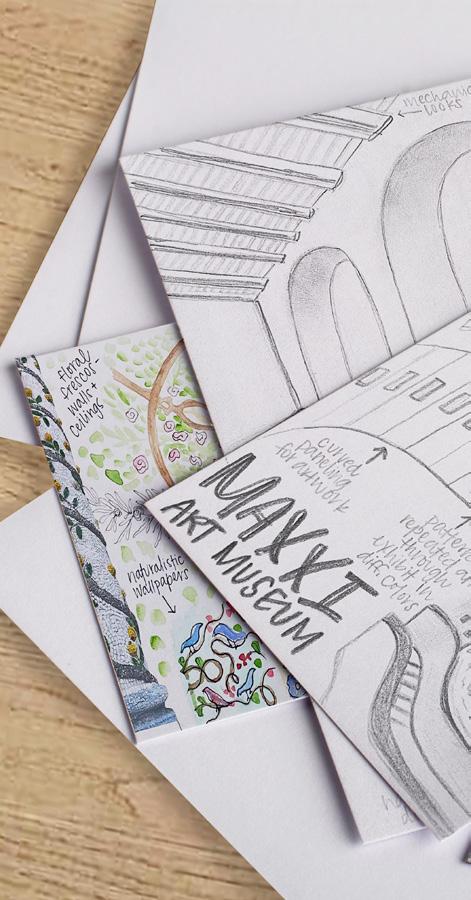 mechanic
looks
floral
frescos
walls +
ceilings
curved
paneling
for artwork
MAXXI
ART MUSEUM
patter
repeated a
through
exhibit in
diff colors
naturalistic
wallpapers